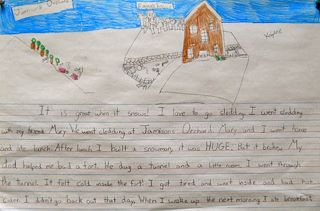 Jamisons Orchard
It is great when it snows! I love to go sledding. I went sledding
with my friend Macy. We went sledding at Jamisons Orchard. Macy and I went home
and ate lunch. After lunch I built a snowman, it was HUGE. But it broke. My
dad helped me build a fort. He dug a tunnel and a little room. I went through
the tunnel. It felt cold inside the fort! I got tired and went inside and had hot
I didn't go back out that day. When I woke up the next morning I ate breakfast